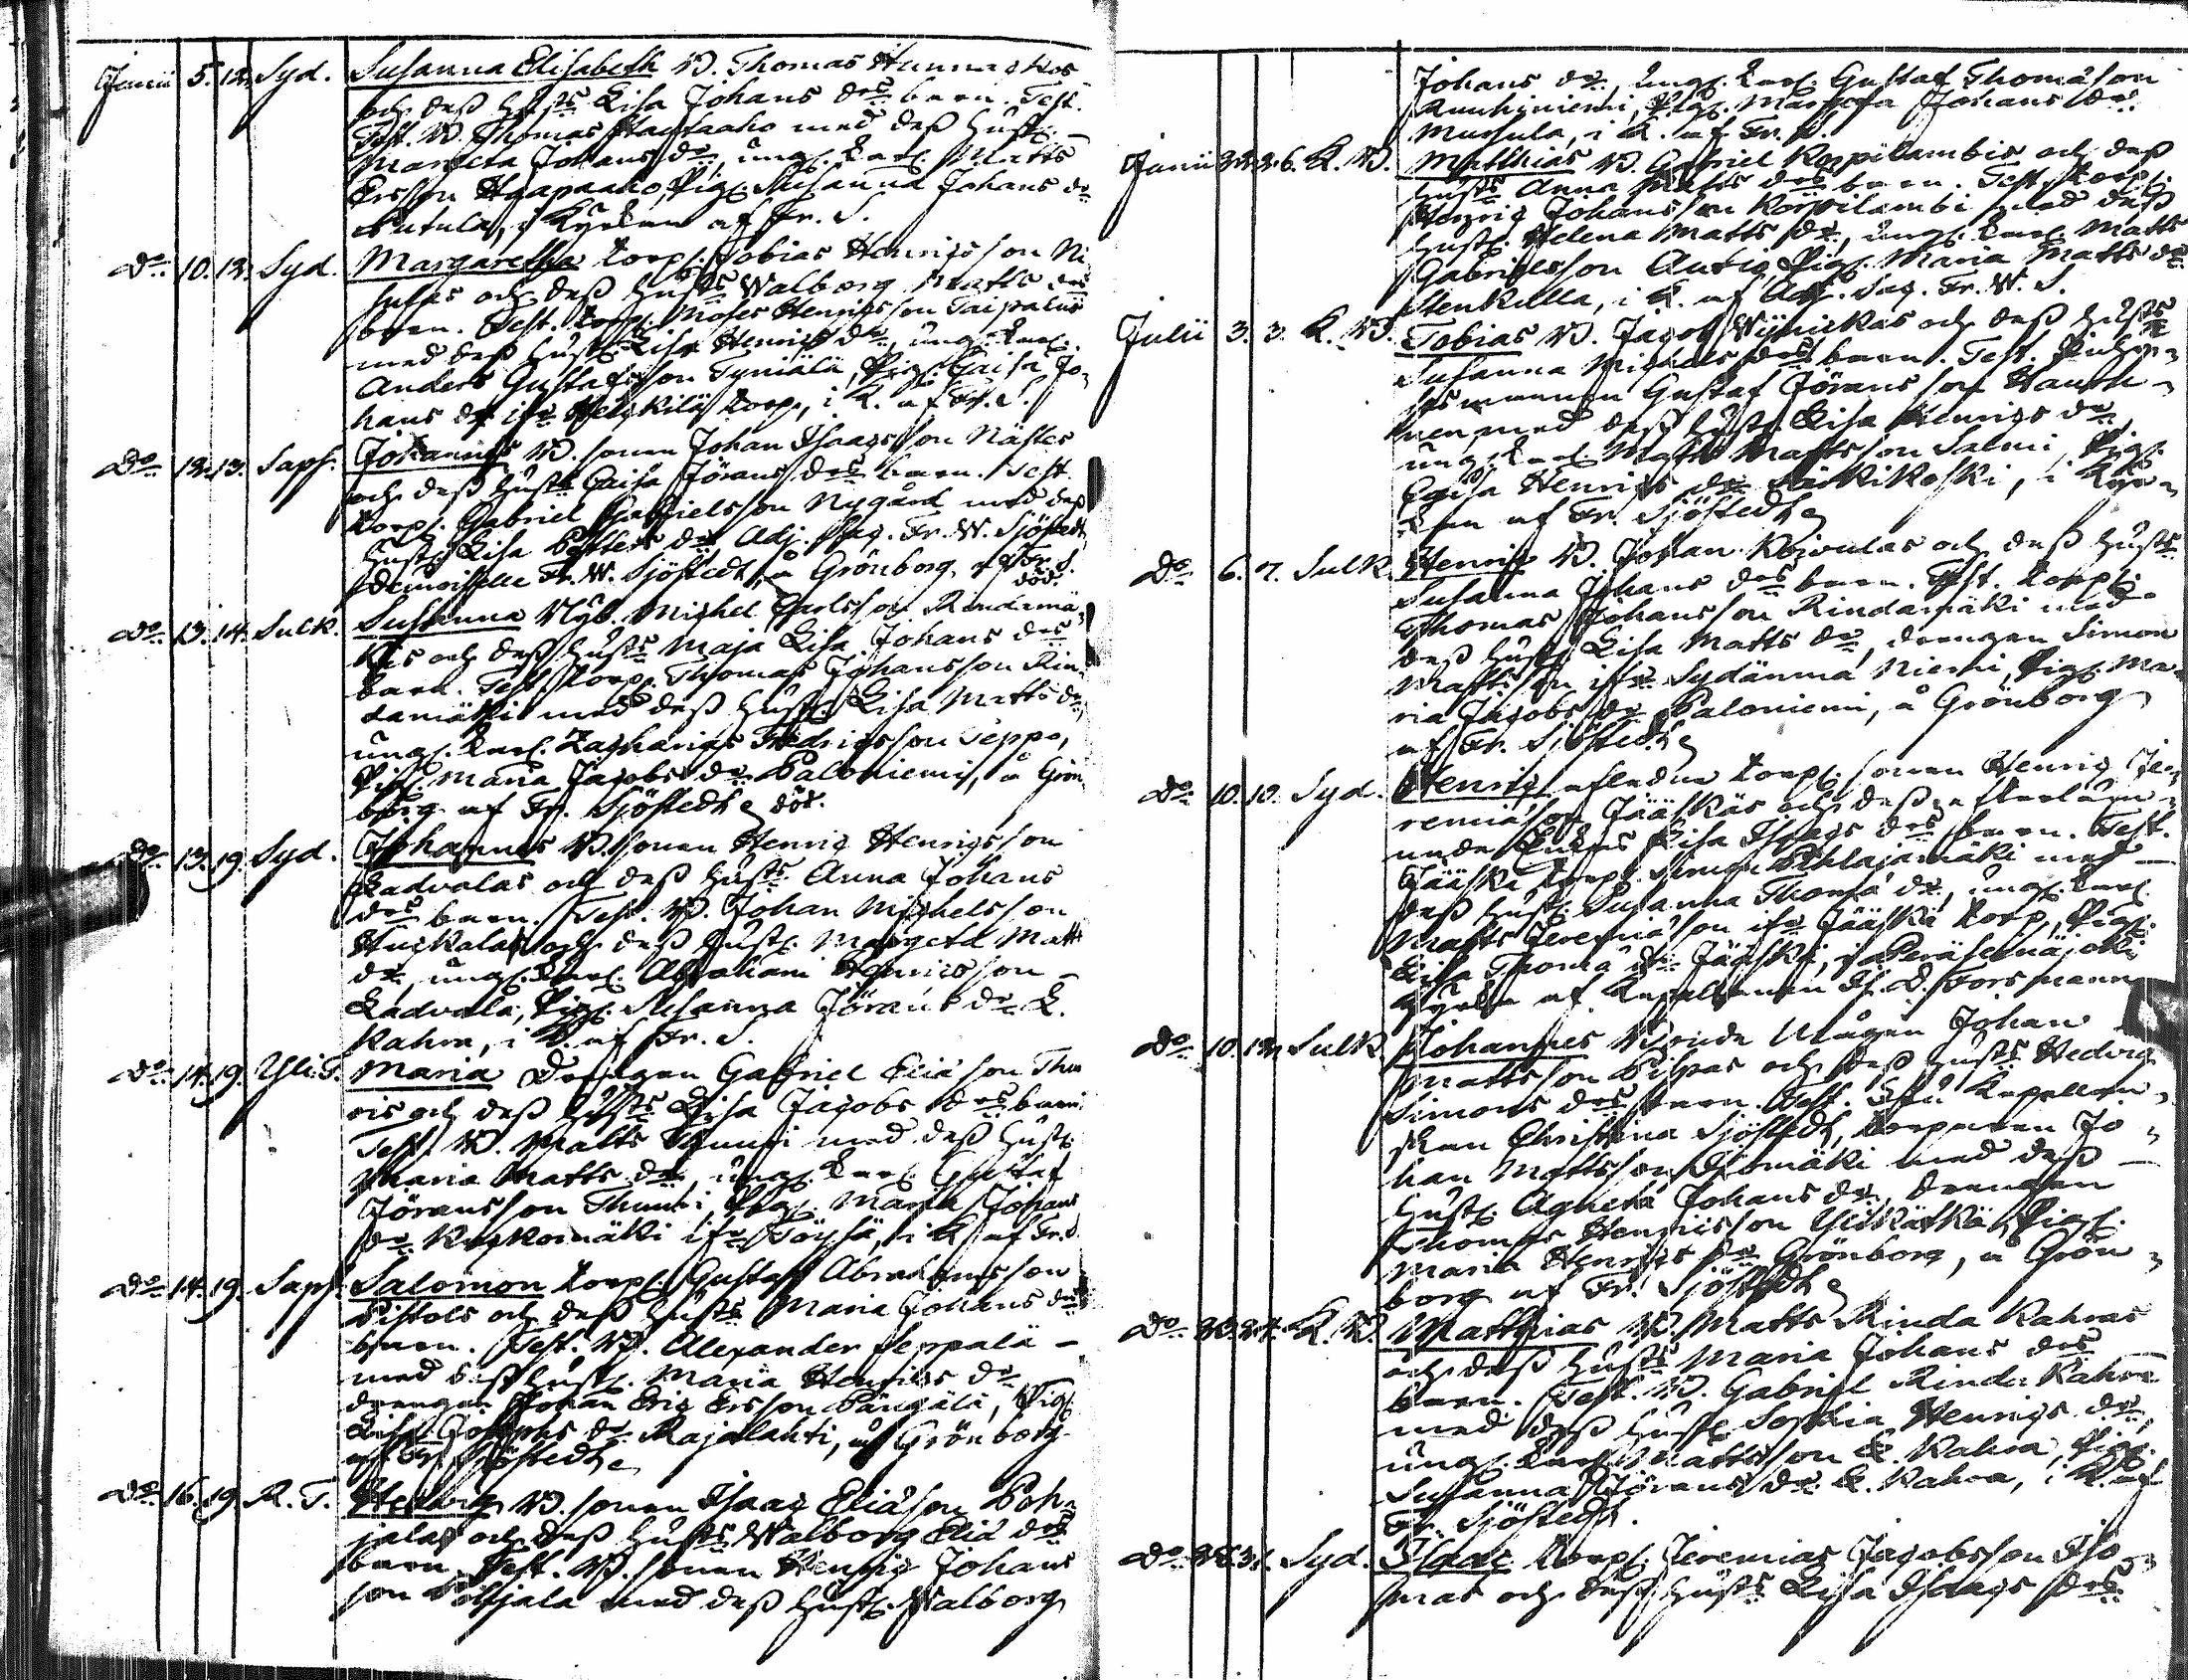 Junii 5. 12. Syd. Susanna Elisabeth B. Thomas Hunnackos
och dess Hust:s Lisa Johans d:rs barn. Test.
Test. B. Thomas med dess Hust.
Margeta Johans d:r, ung. Karl. Matts
Ersson Haapaaho, Pig. Susanna Johans d:r
i Kyrkan af Fr. S.
D:o 10. 12. Syd. Margaretha Torp. Tobias Henricsson Ni
och dess Hust:s Walborg Matts d:rs
barn. Test. Torp. Moses Henricsson Taipalus
med dess Hust. Lisa Henrics d:r, ung. Karl.
Anders Gustafsson Tyniälä, Pig. Caisa Jo-
hans d:r ifr. Heickilä torp, i K. af Fr. S.
D:o 12. 13. Saps. Johannes B. sonen Johan Isaacsson Nässes
och dess Hust:s Caisa Jörans d:rs barn. Test.
Torp. Gabriel Gabrielsson Nygård med dess
Hust. Lisa Petters d:r Adj. Sac. Fr. W. Sjöstedt
Demoiselle Fr. W. Sjöstedt, å Grönborg af Fr. S.
död.
D:o 13. 14. Sulk. Susanna Nyb. Michel Carlsson Rindamä-
kis och dess Hust:s Maja Lisa Johans d:rs
barn. Test. Torp. Thomas Johansson Rin-
damäki med dess Hust. Lisa Matts d:r,
ung. Karl. Zacharias Hedricsson Seppo,
Pig. Maria Jacobs d:r Paloniemi, å Grön-
borg af Fr. Sjöstedt död.
D:o 13. 19. Syd. Johannes B. sonen Henric Henricsson
Ladvalas och dess Hust:s Anna Johans
d:rs barn. Test. B. Johan Michelsson
och dess Hust. Margeta Matts
d:r, ung. Karl. Abraham Henricsson
Ladvala, Pig. Susanna Jörans d:r L.
Kahra, i K. af Fr. S.
D:o 14. 19. Yli.T. Maria Drengen Gabriel Eliä son Thu
ris och dess Hust:s Lisa Jacobs d:rs barn
Test. B. Matts Thuuri med dess Hust.
Maria Matts d:r, ung. Karl. Gustaf
Jöransson Thuuri, Pig. Maria Johans
d:r Kuckomäki ifr. Töysä, i K. af Fr. S.
D:o 14. 19. Saps. Salomon Torp. Gustaf Abrahamsson
Pistols och dess Hust:s Maria Johans d:rs
barn. Test. B. Alexander Seppälä
med dess Hust. Maria Henrics d:r
drengen Johan Eric Ersson Pangälä, Pig.
Lisa Josephs d:r Rajalahti, å Grönborg
af Fr. Sjöstedt
D:o 16. 19. R. T. Hedvig B. sonen Isaac Eliä son Poh-
jalas och dess Hust:s Walborg Eliä d:rs
barn. Test. B. sonen Henric Johans
son Pohjala med dess Hust. Walborg
Johans d:r ung. Karl. Gustaf Thomä son
Kuuhiniemi, Pig. Margeta Johans d:r
Mursula, i K. af Fr. S.
Junii 22. 26. K. B. Matthias B. Gabriel Korpilambis och dess
Hust:s Anna Matts d:rs barn. Test. Torp.
Henric Johansson Korpilambi med dess
Hust. Helena Matts d:r, ung. Karl. Matts
Gabrielsson Autio, Pig. Maria Matts d:r
Stenkulla, i K. af Adj. Sac. Fr. W. S.
Julii 3. 3. K. B. Tobias B. Jacob Wijnickas och dess Hust:s
Susanna Michels d:rs barn. Test.
mannen Gustaf Jöransson
med dess Hust. Lisa Henrics d:r
ung. Karl. Matts Mattsson Salmi, Pig.
Caisa Henrics d:r Särkikoski, i Kyr-
kan af Fr. Sjöstedt
D:o 6. 7. Sulk. Henric B. Johan Koivulas och dess Hust:s
Susanna Johans d:rs barn. Test. Torp.
Thomas Johansson Rindamäki med
dess Hust. Lisa Matts d:r, drengen Simon
Mattsson ifr. Sydänmä Niemi, Pig. Ma-
ria Jacobs d:r Paloniemi, å Grönborg
af Fr. Sjöstedt
D:o 10. 10. Syd. Henric afledne Torp. sonen Henric Je-
remiä son Jääskäs och dess efterläm-
nade Enkas Lisa Isaacs d:rs barn. Test.
Jääskä Torp. Simon Pihlajamäki med
dess Hust. Susanna Thomä d:r, ung. Karl.
Matts Jeremiä son ifr. Jääskä Torp, Pig.
Lisa Thomä d:r Jääskä, i Peräseinäjoki
Kyrka af Kapellanen Is. D. Forsmann
D:o 10. 12. Sulk. Johannes Bonde Mågen Johan
Mattsson Pilpas och dess Hust:s Hedvig
Simons d:rs barn. Test. Fru Kapellan-
skan Christina Sjöstedt, Torparen Jo-
han Mattsson med dess
Hust. Agneta Johans d:r, Drengen
Thomas Henricsson Ylikätkä, Pig.
Maria Henrics d:r Grönborg, å Grön-
borg af Fr. Sjöstedt
D:o 23. 24. K. B. Matthias B. Matts Rinda Kahras
och dess Hust:s Maria Johans d:rs
barn. Test. B. Gabriel Rinda Kahra
med dess Hust. Sophia Henrics d:r,
ung. Karl Mattsson L. Kahra, Pig.
Susanna Jörans d:r L. Kahra, i K. af
Fr. Sjöstedt.
D:o 28. 31. Syd. Isaac Torp. Jeremias Jacobsson Iso-
mas och dess Hust:s Lisa Isaacs d:rs